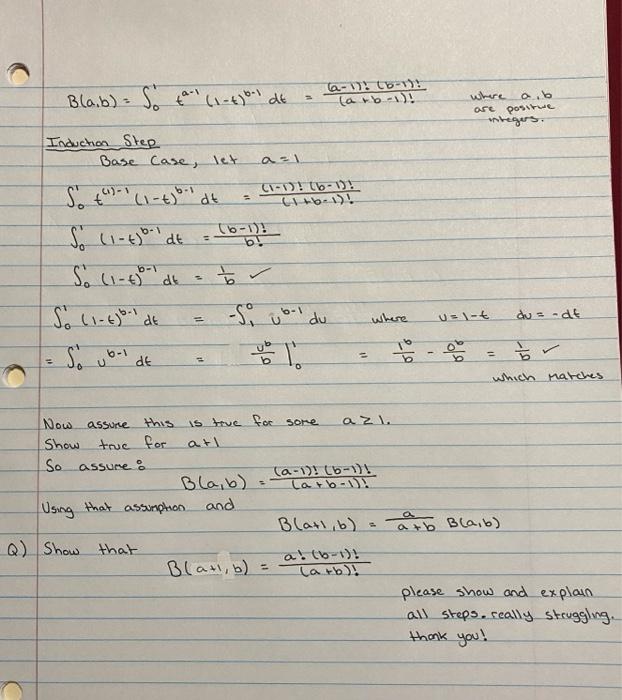 B(a,b) = ∫₀¹ t^(a-1) (1-t)^(b-1) dt = (a-1)! (b-1)! / (a+b-1)! where a,b
are positive
integers.
Induction Step
Base Case, let a=1
∫₀¹ t^((1)-1) (1-t)^(b-1) dt = (1-1)! (b-1)! / (1+b-1)!
∫₀¹ (1-t)^(b-1) dt = (b-1)! / b!
∫₀¹ (1-t)^(b-1) dt = 1/b ✓
∫₀¹ (1-t)^(b-1) dt = -∫₁⁰ u^(b-1) du where u=1-t du=-dt
= ∫₀¹ u^(b-1) dt = u^b/b |₀¹ = 1^b/b - 0^b/b = 1/b ✓
which matches
Now assume this is true for some a≥1.
Show true for a+1
So assume:
B(a,b) = (a-1)! (b-1)! / (a+b-1)!
Using that assumption and
B(a+1,b) = a/(a+b) B(a,b)
Q) Show that
B(a+1,b) = a! (b-1)! / (a+b)!
please show and explain
all steps. really struggling.
thank you!